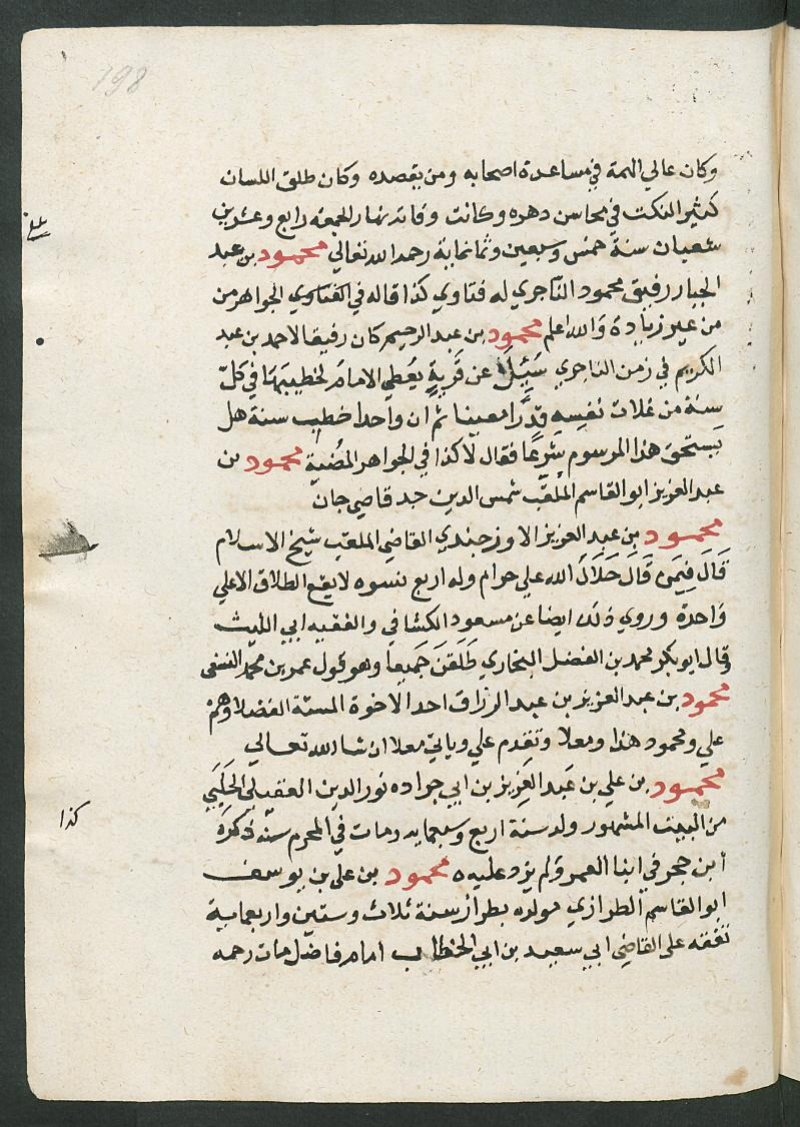 198
وكان عالي الهمة في مساعدة اصحابه ومن يقصده وكان طلق اللسان
كثير النكت في محاسن دهره وكانت وفاته نهار الجمعة رابع وعشرين
شعبان سنة خمس وسبعين وثمانماية رحمه الله تعالي محمود بن عبد
الجبار رفيق محمود التاجري له فتاوي كذا قاله في الفتاوي الجواهر من
من غير زيادة والله اعلم محمود بن عبد الرحيم كان رفيقا لاحمد بن عبد
الكريم في زمن التاجري سَئِلَ عن قَريةٍ يُعطي الامامُ لخطيبهَا في كلّ
سنة من غلات نفسِهِ قدْرًا معينا ثم ان واحدا خطب سنة هل
يستحق هذا المرسوم شرعًا فقال لا كذا في الجواهر المُضية محمود بن
عبد العزيز ابو القاسم الملقّب شمس الدين جد قاصي جان
محمود بن عبد العزيز الاوزجندي القاضي الملقب شيخ الاسلام
قَالَ فيمَن قَالَ حَلَالُ الله علي حرام وله اربع نسوه لا يقع الطلاق الا علي
وَاحدة وروي ذلك ايضا عن مسعود الكشافي والفقيه ابي الليث
وقال ابو بكر محمد بن الفضل البخاري طَلَقنَ جَميعا وهو قول عمر بن محمد النسفى
محمود بن عبد العزيز بن عبد الرزاق احد الاخوة الستة الفضلا وهم
علي ومحمود هذا ومعلا وتقدم علي وياتي معلا ان شا الله تعالي
محمود بن علي بن عَبد العزيز بن ابي جراده نور الدين العقيلي الحَلَبي
من البيت المشهور ولد سنة اربع وسبعمايه ومات في المحرم سنه ذكرَهُ
أبن حجر في ابنا الغمر وَلم يزد عليه ه محمود بن علي بن يوسف
ابو القاسم الطرازي مولده بطراز سنة ثلاث وستين واربعماية
تفقه على القاضِي ابي سعيد بن ابي الخطاب امام فاضل مات رحمه
كذا